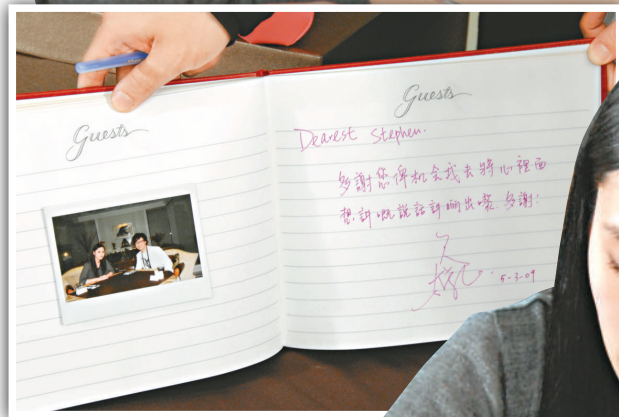 Guests
Guests
Dearest Stephen.
多謝您俾机会我去將心裡面
想訴嘅說話訴晒出嚟 多謝!
5-3-09